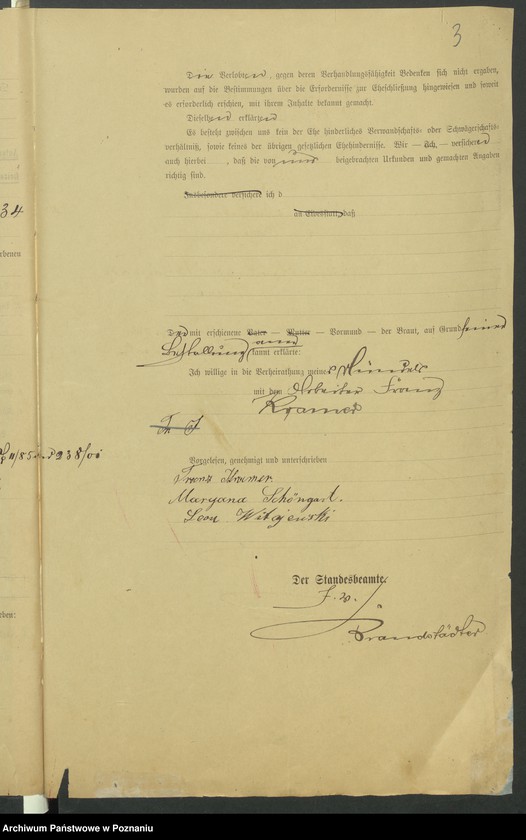 3
Die Verlobten, gegen deren Verhandlungsfähigkeit Bedenken sich nicht ergaben,
wurden auf die Bestimmungen über die Erfordernisse zur Eheschließung hingewiesen und soweit
es erforderlich erschien, mit ihrem Inhalte bekannt gemacht.
Dieselben erklären
Es besteht zwischen uns kein der Ehe hinderliches Verwandtschafts- oder Schwägerschafts-
verhältniß, sowie keines der übrigen gesetzlichen Ehehindernisse. Wir — Ich — versichern
auch hierbei, daß die von uns beigebrachten Urkunden und gemachten Angaben
richtig sind.
Insbesondere versichere ich d
34
an Eidesstatt, daß
Der mit erschienene Vater — Mutter — Vormund — der Braut, auf Grund seiner
Bestallung kannt erklärte:
Ich willige in die Verheirathung meines Mündels
mit dem Arbeiter Franz
Kramer
Vorgelesen, genehmigt und unterschrieben
Franz Kramer.
Maryana Schöngart.
Leon Witajewski
Der Standesbeamte.
J. V.
Brandstädter
Archiwum Państwowe w Poznaniu